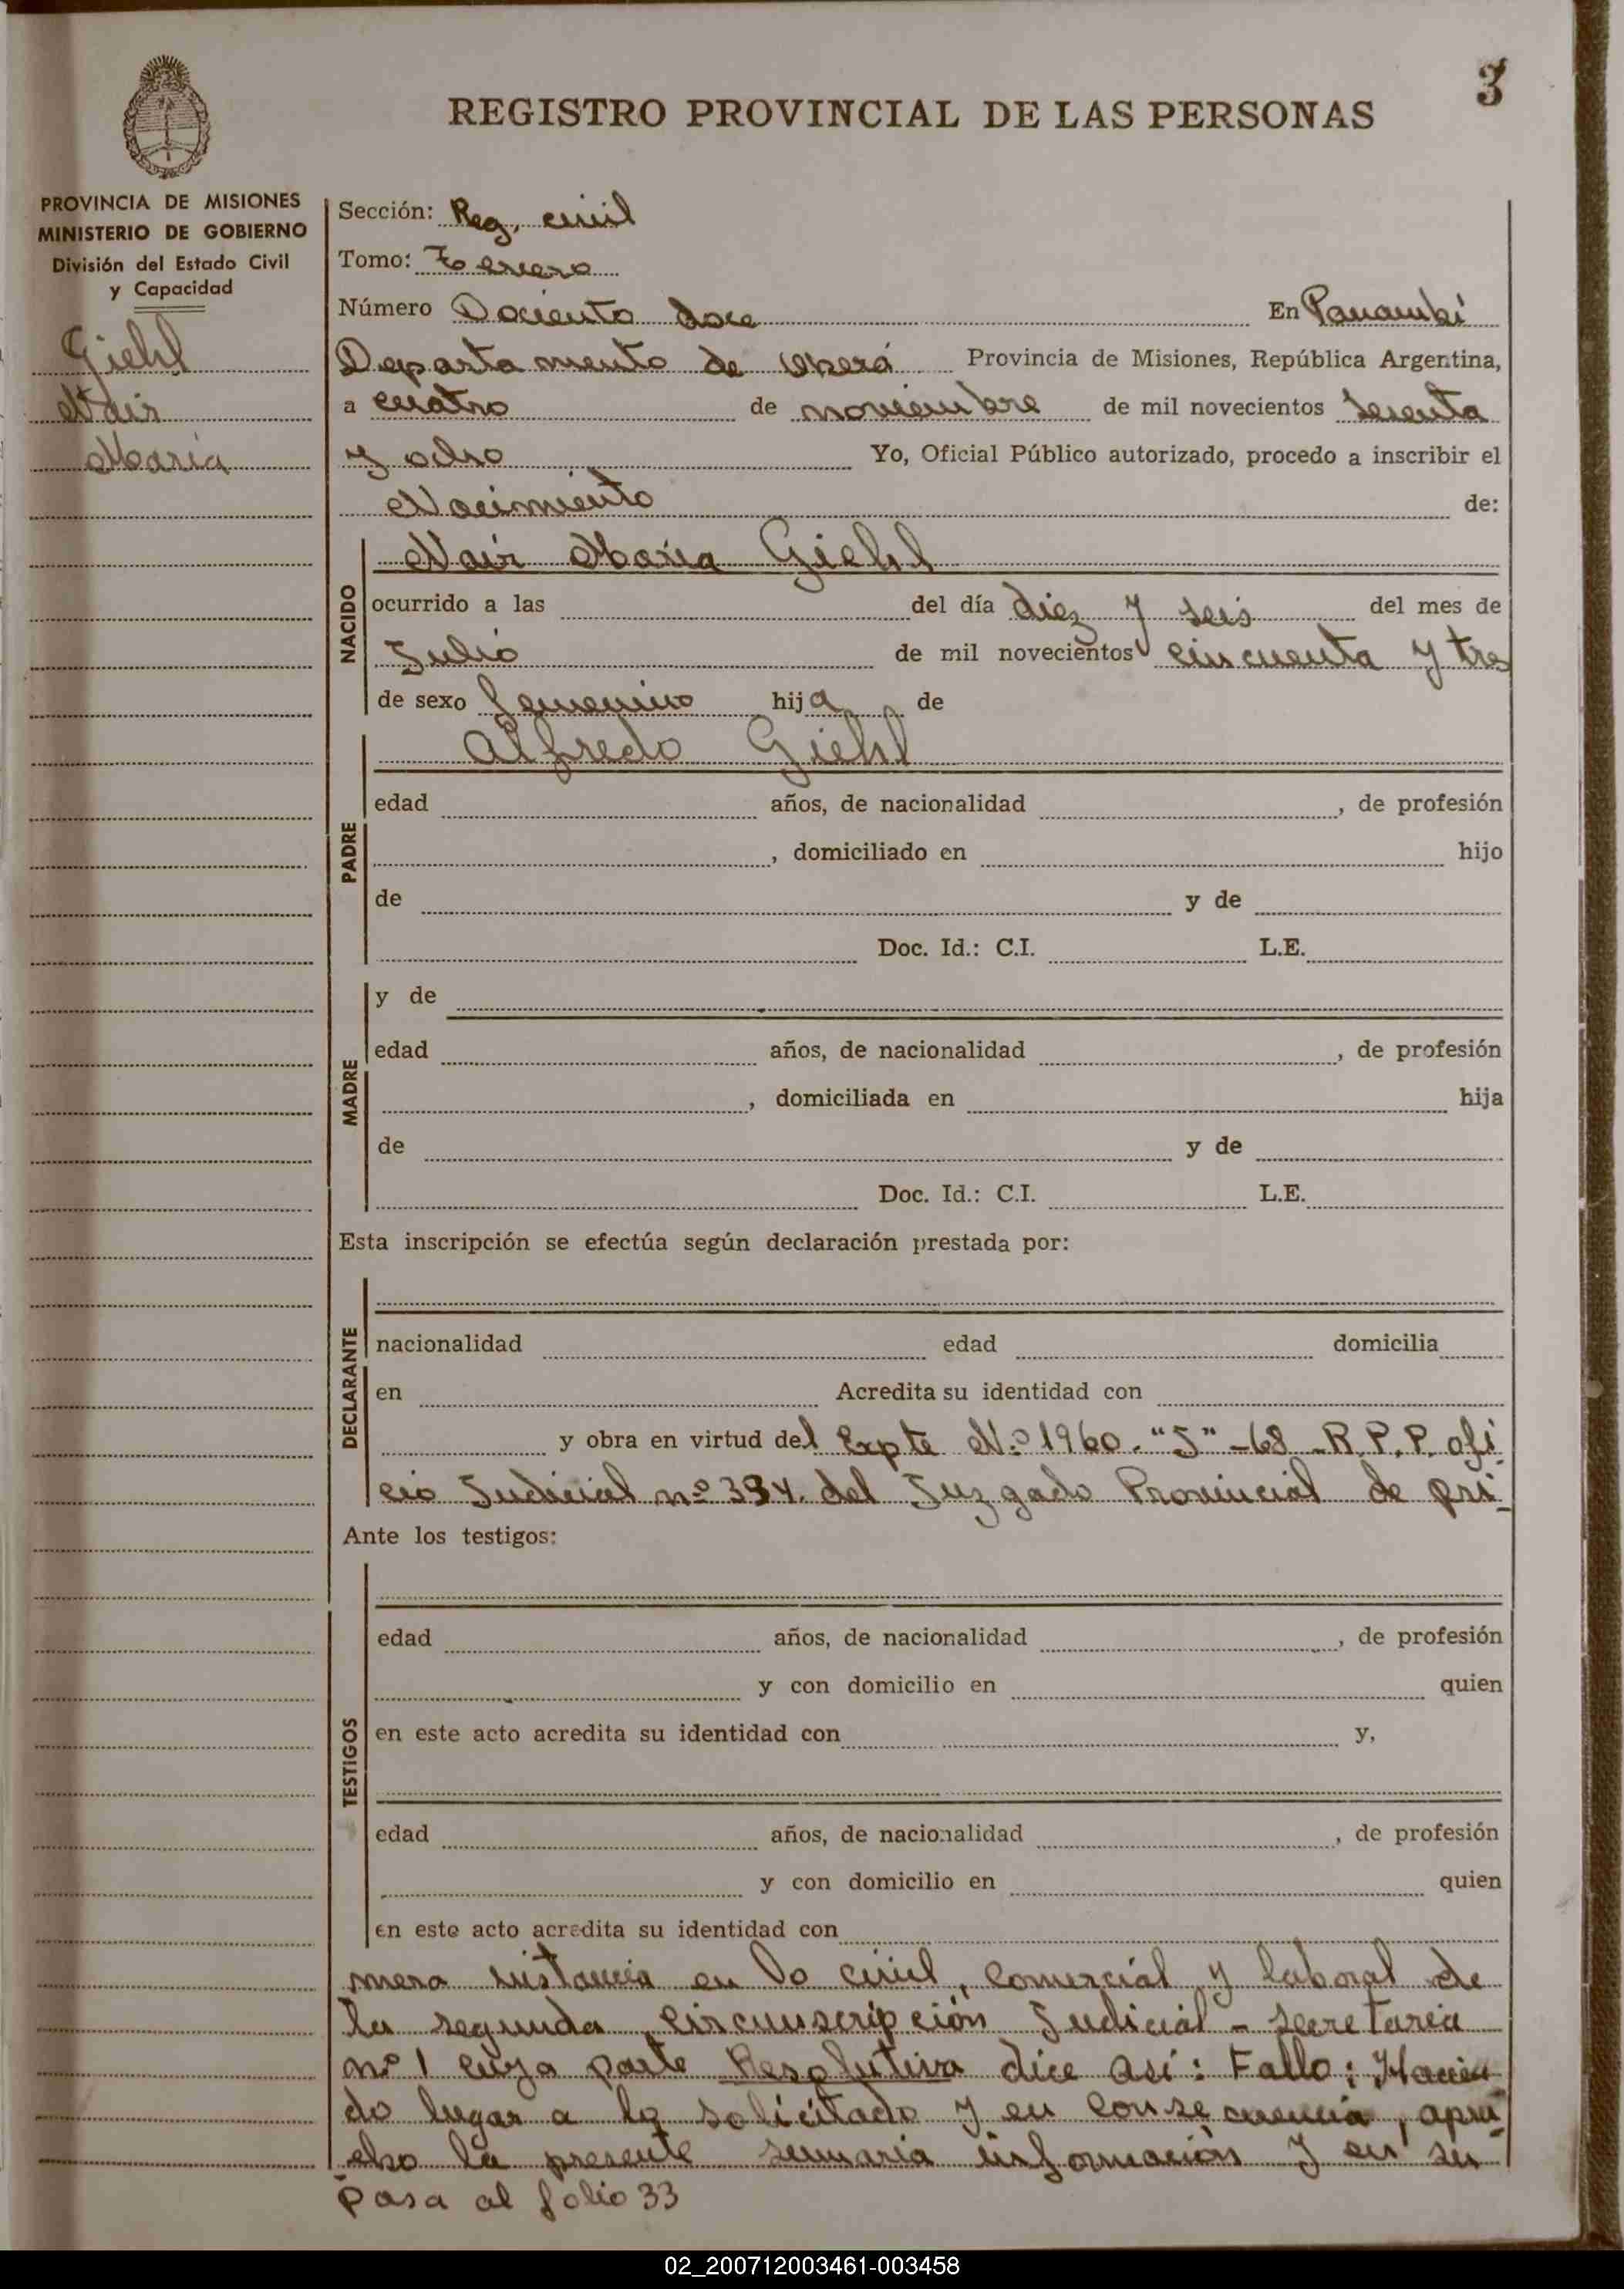 3
REGISTRO PROVINCIAL DE LAS PERSONAS
PROVINCIA DE MISIONES
MINISTERIO DE GOBIERNO
División del Estado Civil
y Capacidad
Giehl
Nair
Maria
Sección: Reg. civil
Tomo: Tercero
Número Dociento doce En Panambí
Departamento de Oberá Provincia de Misiones, República Argentina,
a cuatro de noviembre de mil novecientos sesenta
y ocho Yo, Oficial Público autorizado, procedo a inscribir el
Nacimiento de:
NACIDO
Nair Maria Giehl
ocurrido a las del día diez y seis del mes de
Julio de mil novecientos cincuenta y tres
de sexo femenino hija de
PADRE
Alfredo Giehl
edad años, de nacionalidad , de profesión
, domiciliado en hijo
de y de
Doc. Id.: C.I. L.E.
MADRE
y de
edad años, de nacionalidad , de profesión
, domiciliada en hija
de y de
Doc. Id.: C.I. L.E.
Esta inscripción se efectúa según declaración prestada por:
DECLARANTE
nacionalidad edad domicilia
en Acredita su identidad con
y obra en virtud del Expte N.º 1960. "J" -68 -R.P.P. ofi
cio Judicial nº 394. del Juzgado Provincial de pri-
Ante los testigos:
TESTIGOS
edad años, de nacionalidad , de profesión
y con domicilio en quien
en este acto acredita su identidad con y,
edad años, de nacionalidad , de profesión
y con domicilio en quien
en este acto acredita su identidad con
mera instancia en lo civil, comercial y laboral de
la segunda circunscripción Judicial - secretaria
nº 1 cuya parte Resolutiva dice así: Fallo: Hacien
do lugar a lo solicitado y en consecuencia, apru
ebo la presente sumaria información y en su
Pasa al folio 33
02_200712003461-003458